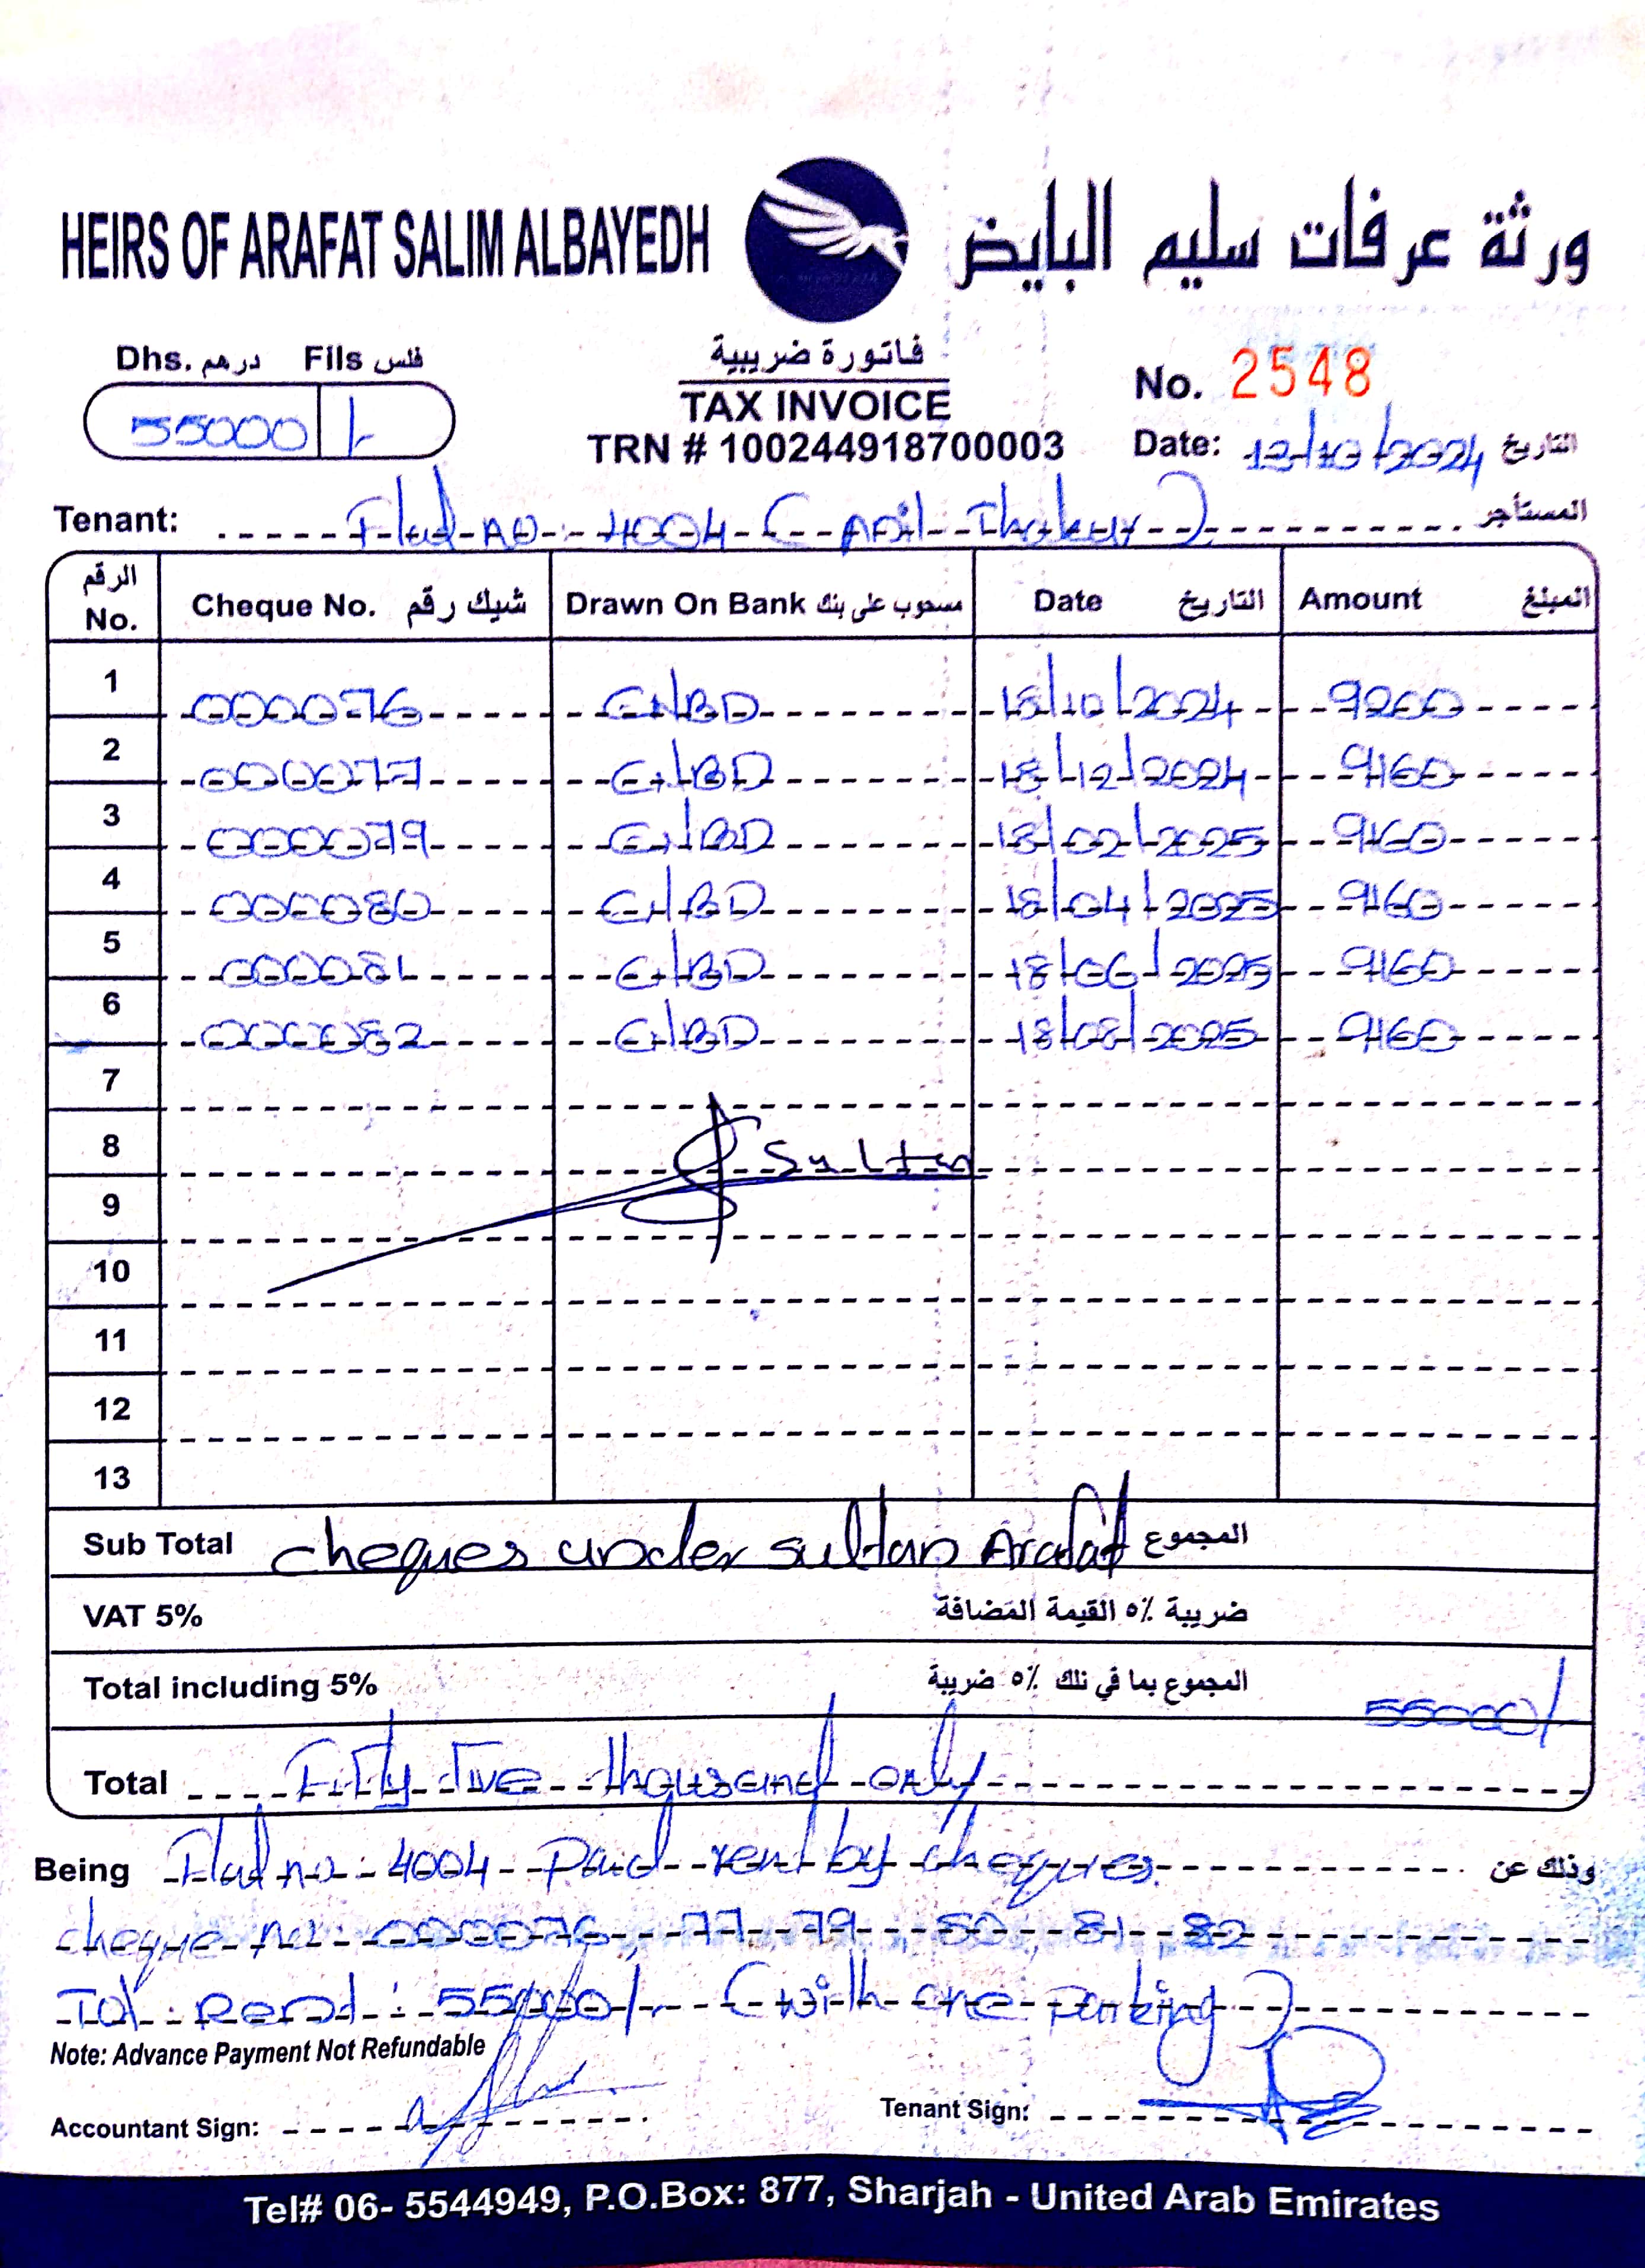 HEIRS OF ARAFAT SALIM ALBAYEDH ورثة عرفات سليم البايض
Dhs. درهم Fils فلس
55000 /-
فاتورة ضريبية
TAX INVOICE
TRN # 100244918700003
No. 2548
Date: 13/10/2024 التاريخ
Tenant: Flat no: 4004 ( Thakur ) المستأجر
الرقم No. Cheque No. شيك رقم Drawn On Bank مسحوب على بنك Date التاريخ Amount المبلغ
1 000076 ENBD 18/10/2024 9200
2 000077 ENBD 18/12/2024 9160
3 000079 ENBD 18/02/2025 9160
4 000080 ENBD 18/04/2025 9160
5 000081 ENBD 18/06/2025 9160
6 000082 ENBD 18/08/2025 9160
7
8 Sultan
9
10
11
12
13
Sub Total cheques under sultan Arafat المجموع
VAT 5% ضريبة ٥٪ القيمة المضافة
Total including 5% المجموع بما في ذلك ٥٪ ضريبة 55000/
Total Fifty Five thousand only
Being Flat no: 4004 Paid rent by cheques. وذلك عن
cheque no: 000076, 77, 79, 80, 81, 82
Tot: Rent: 55000/- (with one parking)
Note: Advance Payment Not Refundable
Accountant Sign:
Tenant Sign:
Tel# 06- 5544949, P.O.Box: 877, Sharjah - United Arab Emirates